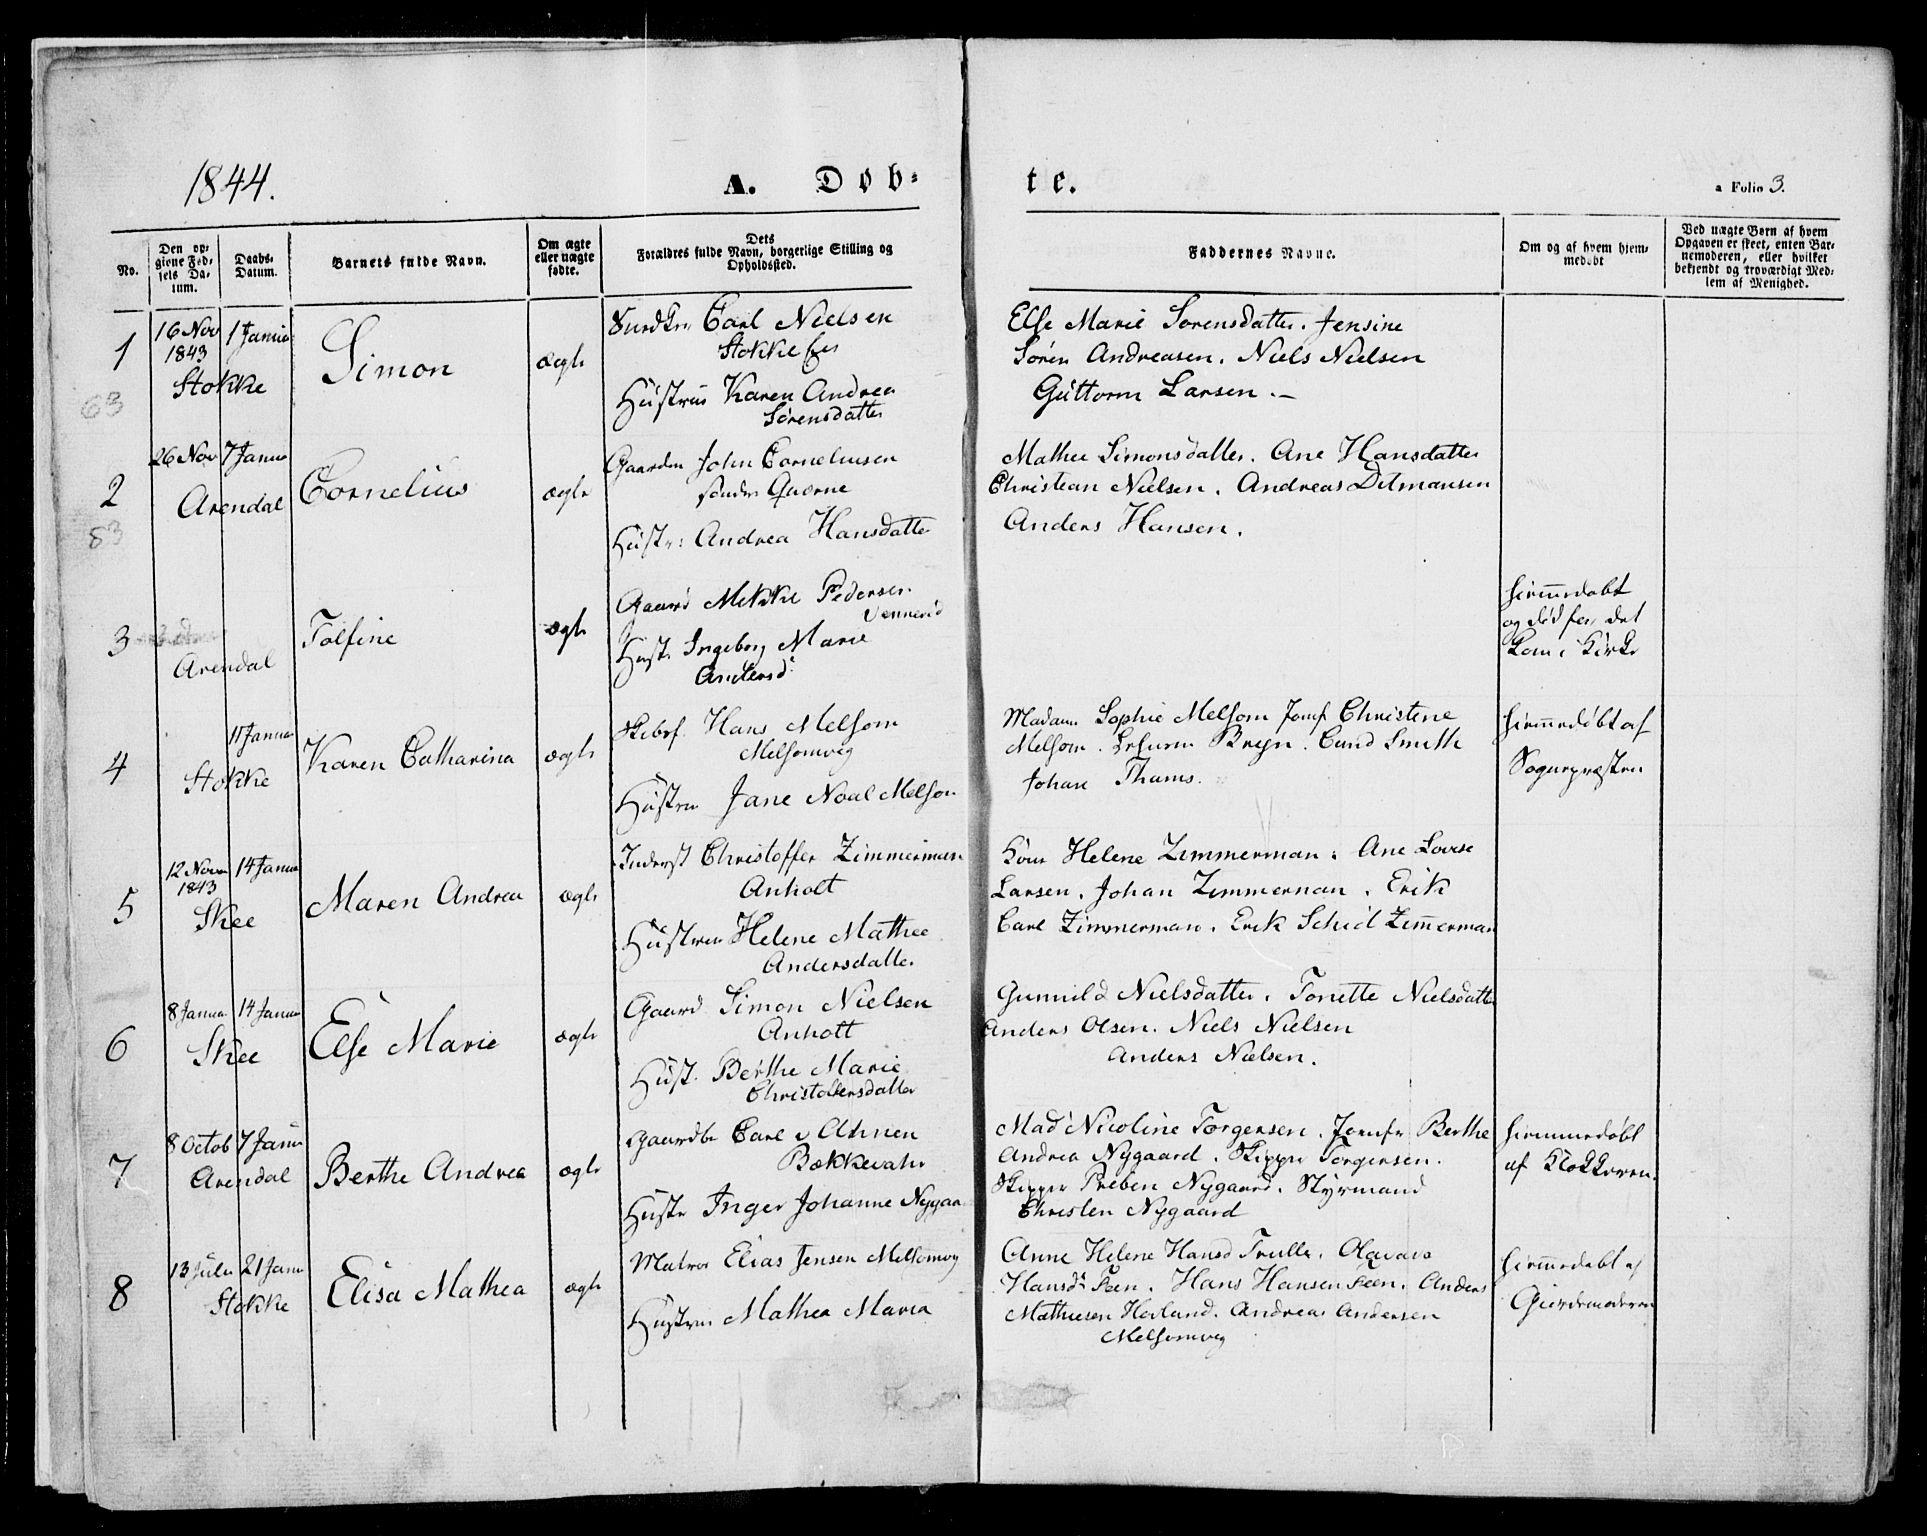 1844.
A. Døb-
te.
a Folio 3.
No.
Den opgivne Fødsels Datum.
Daabs-Datum.
Barnets fulde Navn.
Om ægte eller uægte fødte.
Dets Forældres fulde Navn, borgerlige Stilling og Opholdssted.
Faddernes Navne.
Om og af hvem hjemmedøbt
Ved uægte Børn af hvem Opgaven er skeet, enten Barnemoderen, eller hvilket bekjendt og troværdigt Medlem af Menighed.
1
63
16 Nov 1 Janua
1843
Stokke
Simon
ægte
Carl Nielsen
Stokke
Hustrue Karen Andrea
Sørensdatter
Else Marie Sørensdatter. Jensine
Søren Andreasen. Niels Nielsen
Guttorm Larsen.
2
83
26 Nov 7 Janua
Arendal
Cornelius
ægte
Gaardm John Corneliusen
søndre Qværne
Hustr: Andrea Hansdatter
Mathee Simonsdatter. Ane Hansdatter
Christian Nielsen. Andreas Ditmansen
Anders Hansen.
3
Arendal
Tolfine
ægte
Gaard Mekkel Pedersen
Vennerød
Hust. Ingeborg Marie
Andersd:
hjemmedøbt
og død før det
kom i Kirke
4
11 Janua
Stokke
Karen Catharina
ægte
Skibsf. Hans Melsom
Melsomvig
Hustru Jane Noal Melsom
Madam Sophie Melsom Jomf Christine
Melsom. Bryn. Cand Smith
Johan Thams.
hjemmedøbt af
Sognepræsten
5
12 Novm 14 Janua
1843
Skee
Maren Andrea
ægte
Inderst Christoffer Zimmerman
Anholt
Hustrue Helene Mathee
Andersdatter
Kone Helene Zimmerman. Ane Lovise
Larsen. Johan Zimmerman. Erik
Carl Zimmerman. Erik Schid Zimmerman
6
8 Janua 14 Janua
Skee
Else Marie
ægte
Gaard Simon Nielsen
Anholt
Hust. Berthe Marie
Christoffersdatter
Gunnild Nielsdatter. Tonette Nielsdatter
Anders Olsen. Niels Nielsen
Anders Nielsen.
7
8 Octob 7 Janu
Arendal
Berthe Andrea
ægte
Gaardbr Carl v Ahnen
Bækkevahr
Hustr Inger Johanne Nygaa
Mad Nicoline Torgersen. Jomfr Berthe
Andrea Nygaard. Skipper Torgersen.
Skipper Preben Nygaard. Styrmand
Christen Nygaard
hjemmedøbt
af Klokkeren.
8
13 Julii 21 Janu
Stokke
Elisa Mathea
ægte
Matros Elias Jensen Melsomvig
Hustrue Mathea Maria
Anne Helene Hansd Trulls. Olava
Hansdt Feen. Hans Hansen Feen. Anders
Mathiesen Hovland. Andreas Andersen
Melsomvig
hjemmedøbt af
Giordemoderen